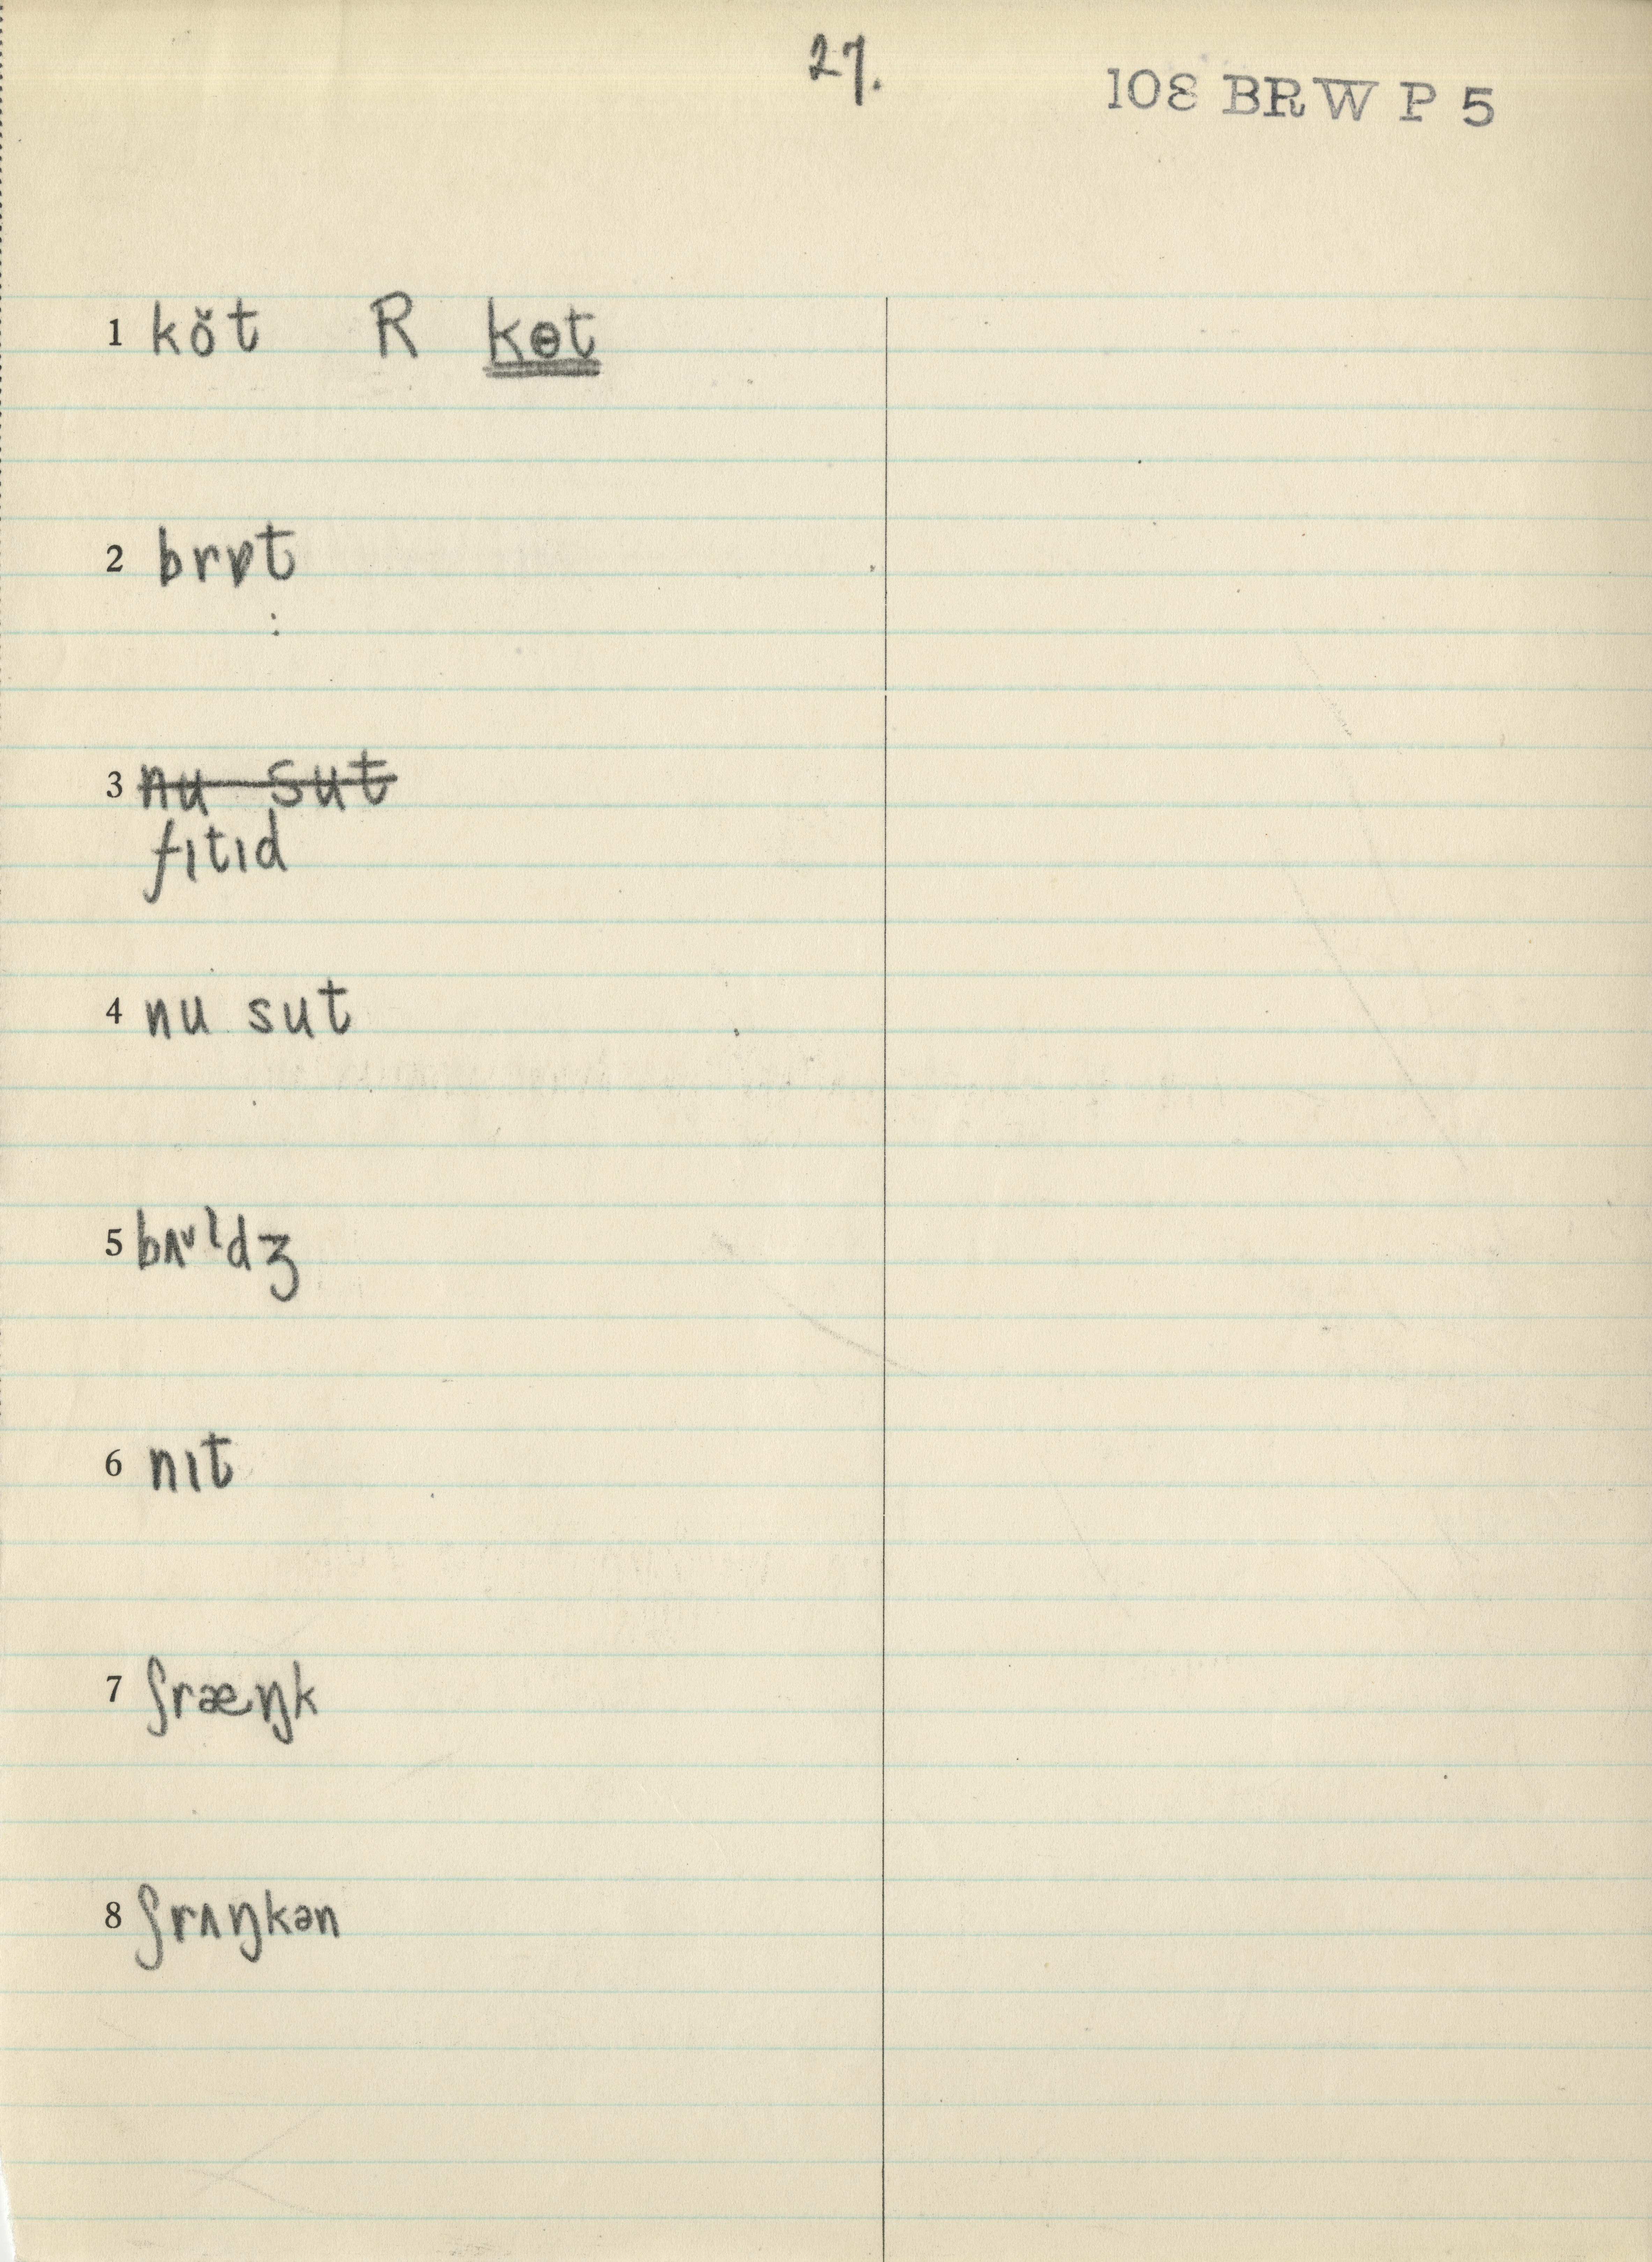 27.
108 BRW P 5
1 kŏt R kɵt
2 brɒt
3 nu sut
fɪtɪd
4 nu sut
5 bʌᵛldʒ
6 nɪt
7 ʃræŋk
8 ʃrʌŋkən